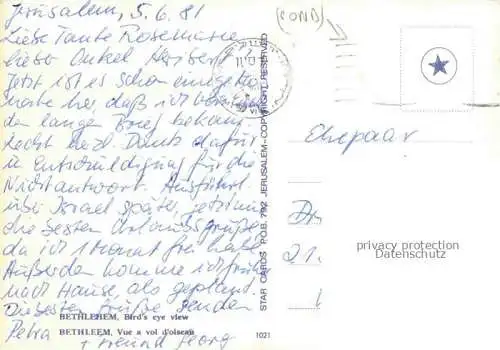 Jerusalem, 5.6.81
Liebe Tante Rosemarie
lieber Onkel Heribert
Jetzt ist es schon einige
her, daß ich
den langen Brief bekam.
Recht herzl. Dank dafür
u. Entschuldigung für die
Nichtantwort. Ausführl.
über Israel später, jetzt nur
die besten Urlaubsgrüße
da ich 1 Monat frei habe
Außerdem komme ich früher
nach Hause, als geplant
Die besten Grüße senden
Petra
+ Freund Georg
BETHLEHEM, Bird's eye view
BETHLEEM, Vue a vol d'oiseau
1021
STAR CARDS P.O.B. 792 JERUSALEM-COPYRIGHT RESERVED
Ehepaar
Dr
21.
privacy protection
Datenschutz